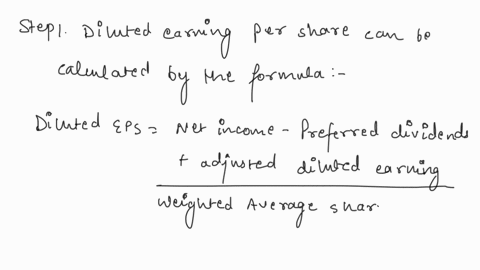 Step1. Diluted earning per share can be
calculated by the formula:-
Diluted EPS = Net income - Preferred dividends
+ adjusted diluted earning
Weighted Average shar